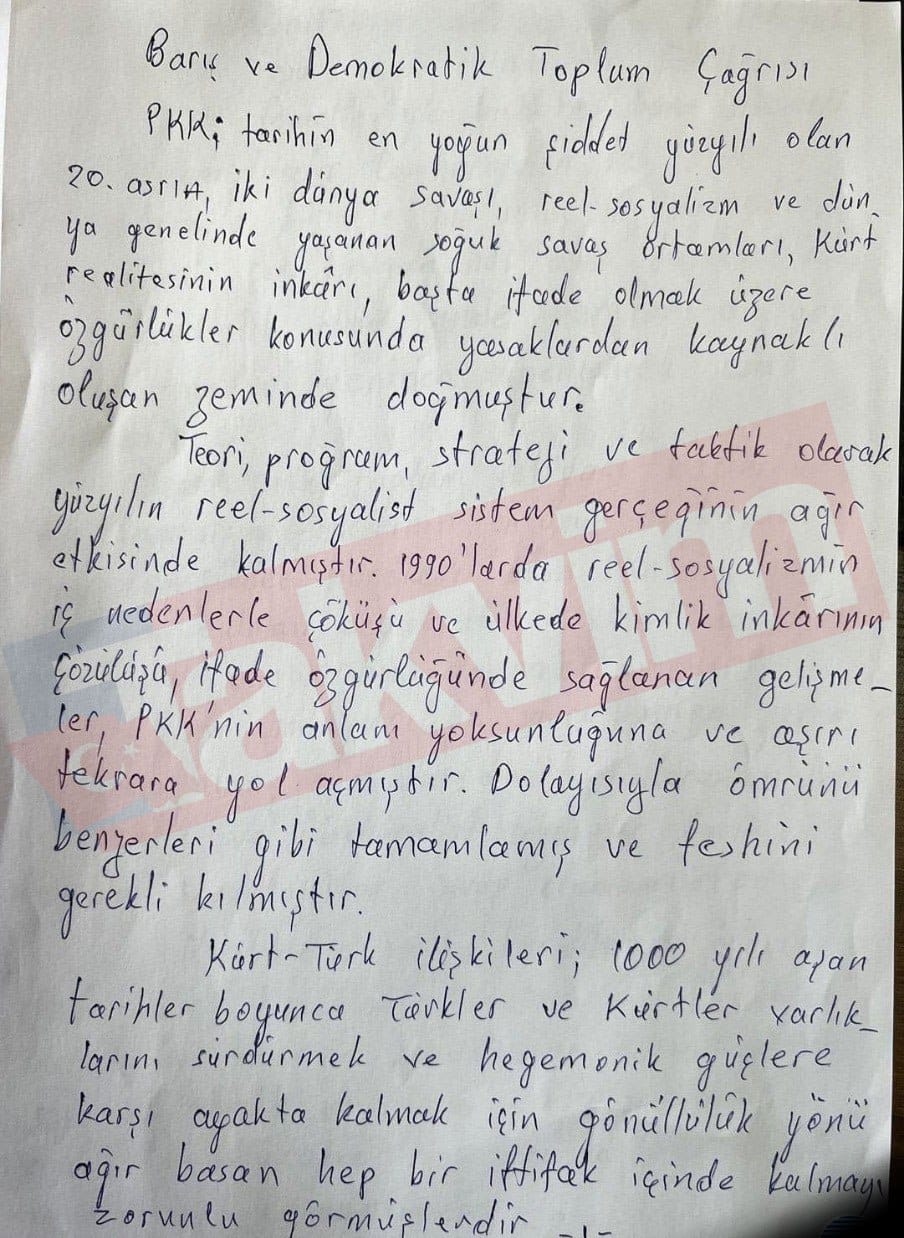 Barış ve Demokratik Toplum Çağrısı
PKK; tarihin en yoğun şiddet yüzyılı olan
20. asrın, iki dünya savaşı, reel-sosyalizm ve dün
ya genelinde yaşanan soğuk savaş ortamları, Kürt
realitesinin inkârı, başta ifade olmak üzere
özgürlükler konusunda yasaklardan kaynaklı
oluşan zeminde doğmuştur.
Teori, proğram, strateji ve taktik olarak
yüzyılın reel-sosyalist sistem gerçeğinin ağır
etkisinde kalmıştır. 1990'larda reel-sosyalizmin
iç nedenlerle çöküşü ve ülkede kimlik inkârının
çözülüşü, ifade özgürlüğünde sağlanan gelişme-
ler, PKK'nin anlam yoksunluğuna ve aşırı
tekrara yol açmıştır. Dolayısıyla ömrünü
benzerleri gibi tamamlamış ve feshini
gerekli kılmıştır.
Kürt-Türk ilişkileri; 1000 yılı aşan
tarihler boyunca Türkler ve Kürtler varlık-
larını sürdürmek ve hegemonik güçlere
karşı ayakta kalmak için gönüllülük yönü
ağır basan hep bir ittifak içinde kalmayı
zorunlu görmüşlerdir -1-
takvim